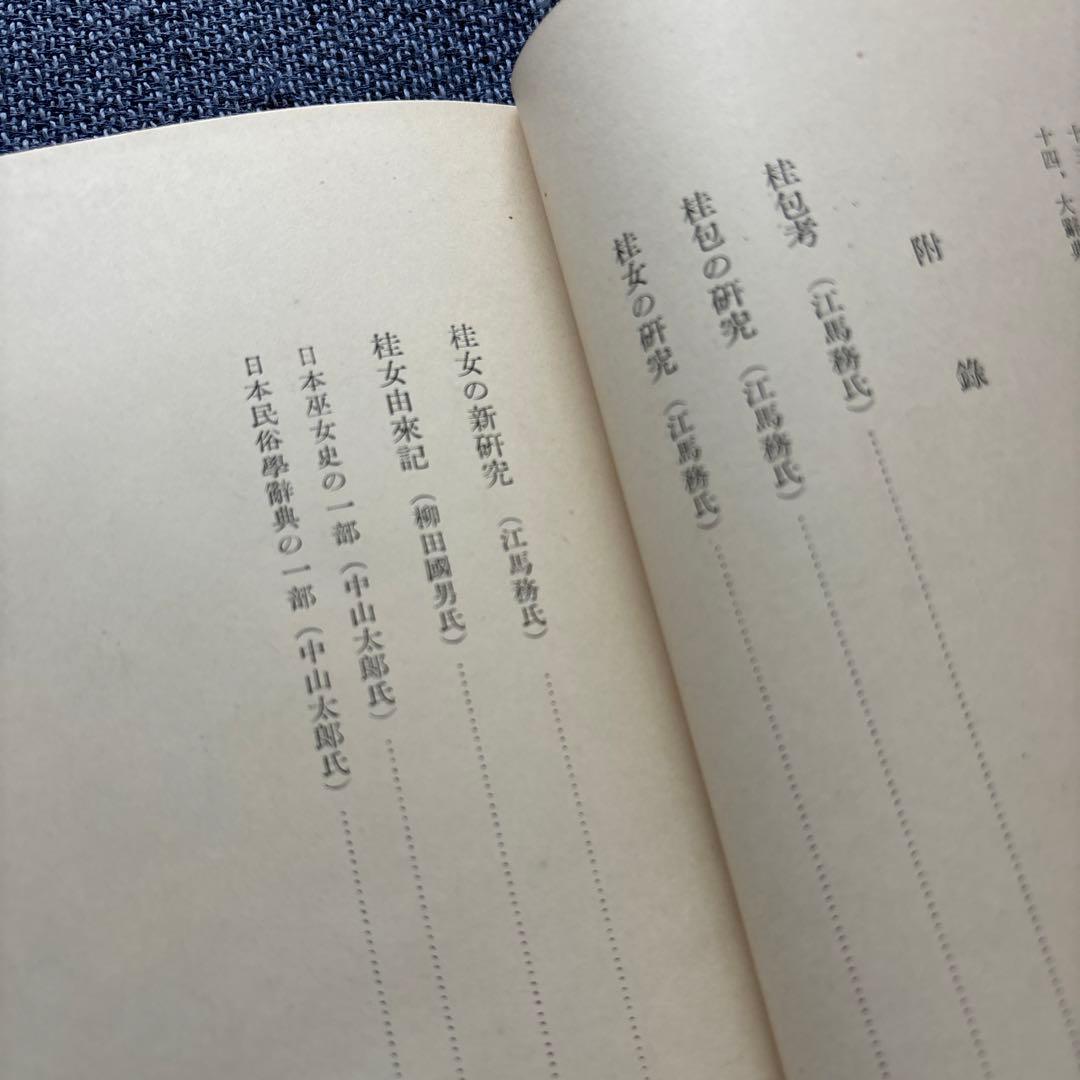 十四、大辭典
附錄
桂包考（江馬務氏）
桂包の研究（江馬務氏）
桂女の研究（江馬務氏）
桂女の新研究（江馬務氏）
桂女由來記（柳田國男氏）
日本巫女史の一部（中山太郎氏）
日本民俗學辭典の一部（中山太郎氏）